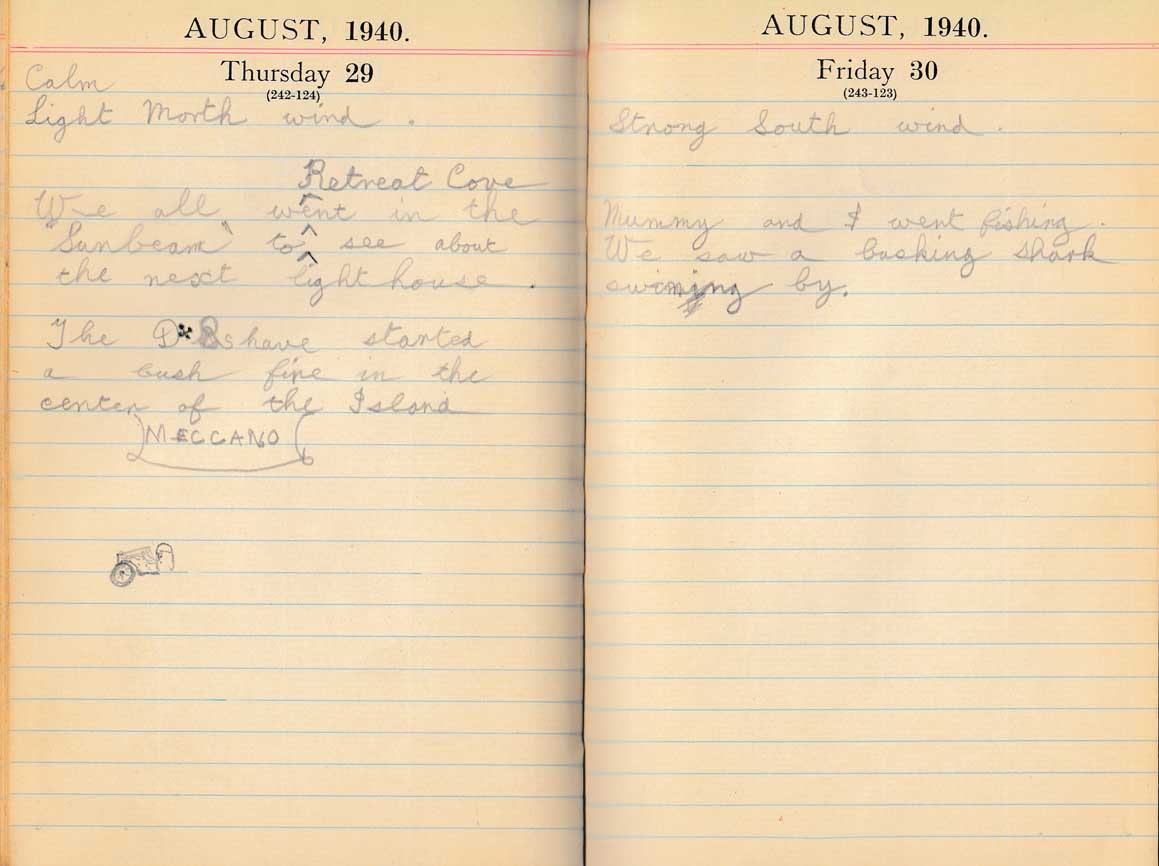 AUGUST, 1940.
Thursday 29
(242-124)
Calm
Light North wind .
Retreat Cove
We all went in the
"Sunbeam" to see about
the next lighthouse .
The have started
a bush fire in the
center of the Island
MECCANO
AUGUST, 1940.
Friday 30
(243-123)
Strong South wind .
Mummy and I went fishing .
We saw a basking shark
swiming by.